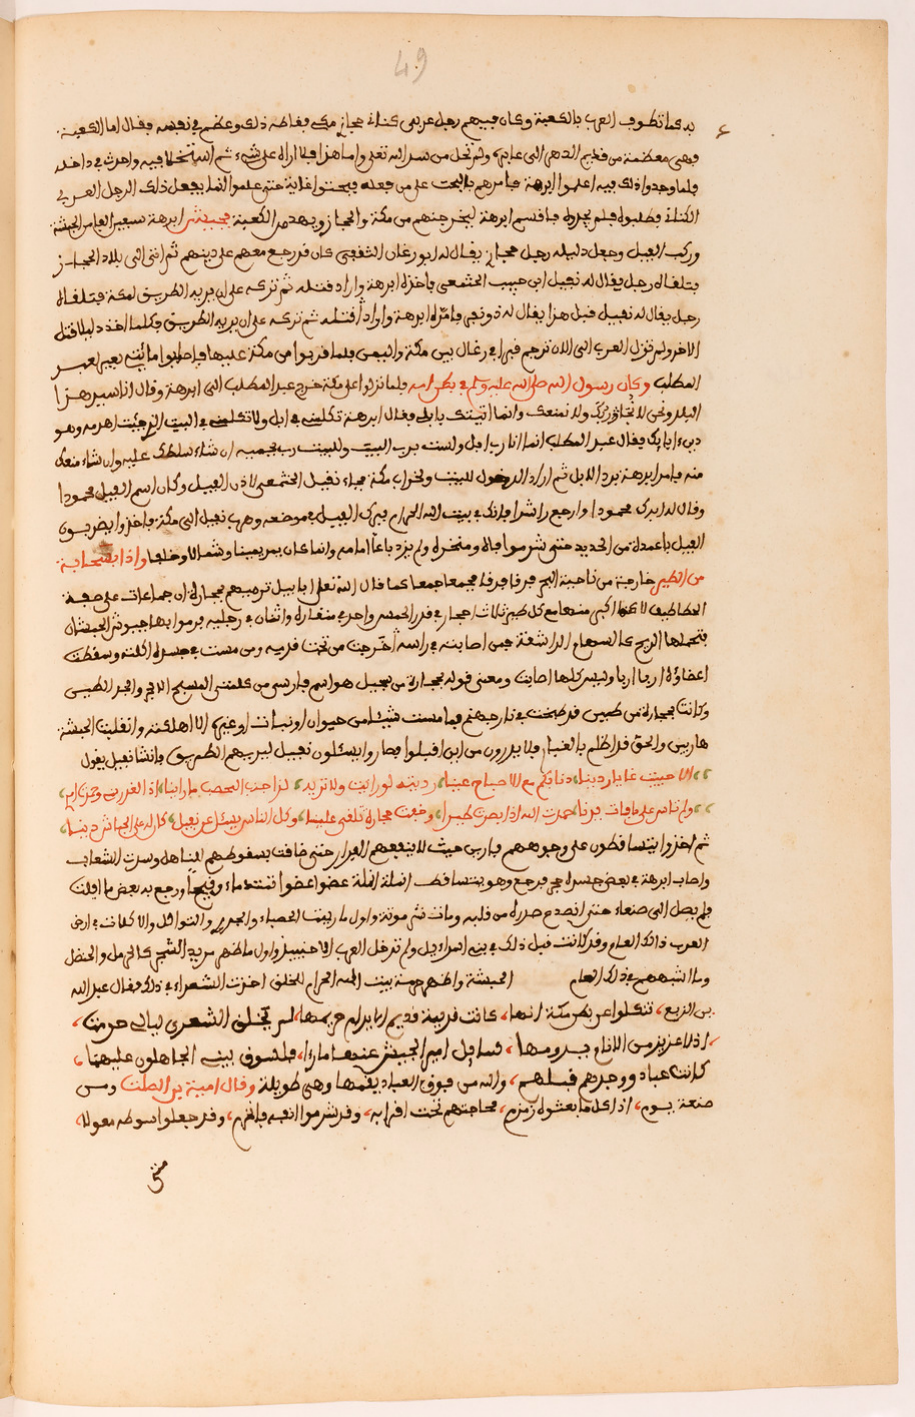 49
به كما تطوف العرب بالكعبة وكان فيهم رجل عربي كناني حجازي مكي فغاظه ذلك وعظم في نفسه فقال اما الكعبة
فهي معظمة من قديم الدهر الى علي ولم تخل من سر الله تعلى واما هذا فلا اراه على شيء ثم انه تخلا فيه واحدث في داخله
فلما وجدوا ذلك فيه اعلموا ابرهة فامرهم بالبحث على من فعله فبحثوا غاية حتى علموا انما يفعل ذلك الرجل العربي
الكناني فطلبوه فلم يجدوه فاقسم ابرهة ليخرجنهم من مكة والحجاز ويهدمن الكعبة فجيش ابرهة سبعين الفا من الحبشة
وركب الفيل وجعل دليله رجل حجازي يقال له ابو رغال الثقفي كان قد رجع معهم على دينهم ثم اتى الى بلاد الحجاز
فتلقاه رجل يقال له نفيل ابن حبيب الخثعمي فاخذه ابرهة واراد قتله ثم تركه على ان يريه الطريق لمكة فتلقاه
رجل يقال له نفيل قبل هذا يقال له ذو نجي فامره ابرهة واراد قتله ثم تركه على ان يريه الطريق فكلما اخذ دليلا قتل
الاخر ولم تزل العرب الى الان ترجم قبر ابي رغال بين مكة واليمن فلما قربوا من مكة عليها فاصابوا مائتي بعير لعبد
المطلب وكان رسول الله صلى الله عليه وسلم في بطن امه فلما نزلوا على مكة خرج عبد المطلب الى ابرهة وقال انا سيد هذا
البلد ونحن لا نجاوزك ولا نمنعك وانما اتيتك بابلي فقال ابرهة تكلمني في ابل ولا تكلمني في البيت الذي جئت اهدمه وهو
دين ابائك فقال عبد المطلب انما انا رب ابل ولست برب البيت وللبيت رب يحميه ان شاء سلطك عليه وان شاء منعك
منه فامر ابرهة برد الابل ثم اراد الدخول للبيت ولخراب مكة فجاء نفيل الخثعمي لاذن الفيل وكان اسم الفيل محمودا
وقال له ابرك محمودا وارجع راشدا فانك في بيت الله الحرام فبرك الفيل في موضعه وهرب نفيل الى مكة فاخذوا يضربون
الفيل باعمدة من الحديد حتى شرموا فاه ومنخره ولم يزد باعا امامه وانما كان يمر يمينا وشمالا وخلفا واذا بسحابة
من الطير خارجة من ناحية البحر فرقا فرقا مجمعا جمعا كما قال الله تعلى ابابيل ترميهم بحجارة ان جماعات على صفة
الخطاطيف لاكنها اكبر منها مع كل طير ثلاث احجار في قدر الحمص واحد في منقاره واثنان في رجليه يرموا بها جيوش الحبشان
فتحملها الريح كالسهام الراشقة فمن اصابته في راسه خرجت من تحت قدميه ومن مست في جسده اكلته وسقطت
اعضاؤه اربا اربا وليس كلها اصابت ومعنى قوله بحجارة من سجيل هو اسم فارسي من كلمتي الحجر والطين
وكانت حجارة من طين قد طبخت في نار جهنم فما مست شيئا من حيوان او نبات او غيره الا اهلكته وانقلبت الحبشة
هاربين والحق قد اظلم بالغبار فلا يدرون من اين اقبلوا فصاروا يسئلون نفيل ليريهم الطريق فانشا نفيل يقول
الا حييت عنا يا ردينا نعمناكم مع الاصباح عينا ردينة لو رايت ولا تريه لذا جنب المحصب ما راينا اذا لعذرتني وحمدت امري
ولم تاس على ما فات بينا حمدت الله اذا بصرت طيرا وخفت حجارة تلقى علينا وكل الناس يسئل عن نفيل كان له على الحبشان دينا
ثم اخذوا يتساقطون على وجوههم هاربين حيث لا ينفعهم الفرار حتى ضاقت بسقوطهم المناهل وسدت الشعاب
واصاب ابرهة في بعض جسده حجر فرجع وهو يتساقط انملة انملة عضوا عضوا تنتثر دماء وقيحا ورجع به بعض ما افلت
فلم يصل الى صنعاء حتى انصدع صدره من قلبه ومات شر موتة واول ما ريت الحصباء والجدري والثواليل والاكلات في ارض
العرب ذالك العام وقد كانت قبل ذلك في بني اسرائيل ولم تدخل العرب الا حينئذ واول ما ظهر مرير الشجر كالحرمل والحنظل
وما اشبههم في ذلك العام الحبشة واظهر حرمة بيت الله الحرام للخلق اخذت الشعراء في ذلك فقال عبد الله
بن الزبع تنكلوا عن بطن مكة انها كانت قديمة قديم لا يرام حريمها لم تخلق الشعرى ليالي حرمت
اذ لا عزيز من الانام يرومها سائل امير الجيش عنها ما راى فلسوف ينبي الجاهلون عليمها
كانت عباد وجرهم قبلهم والله من فوق العباد يقيمها وهي طويلة وقال امية بن الصلت ومن
صنعة يوم اذا كلما بعثوه رزم محاجنهم تحت اقرابه وقد شرموا انفه فانخرم وقد جعلوا سوطه مغولا